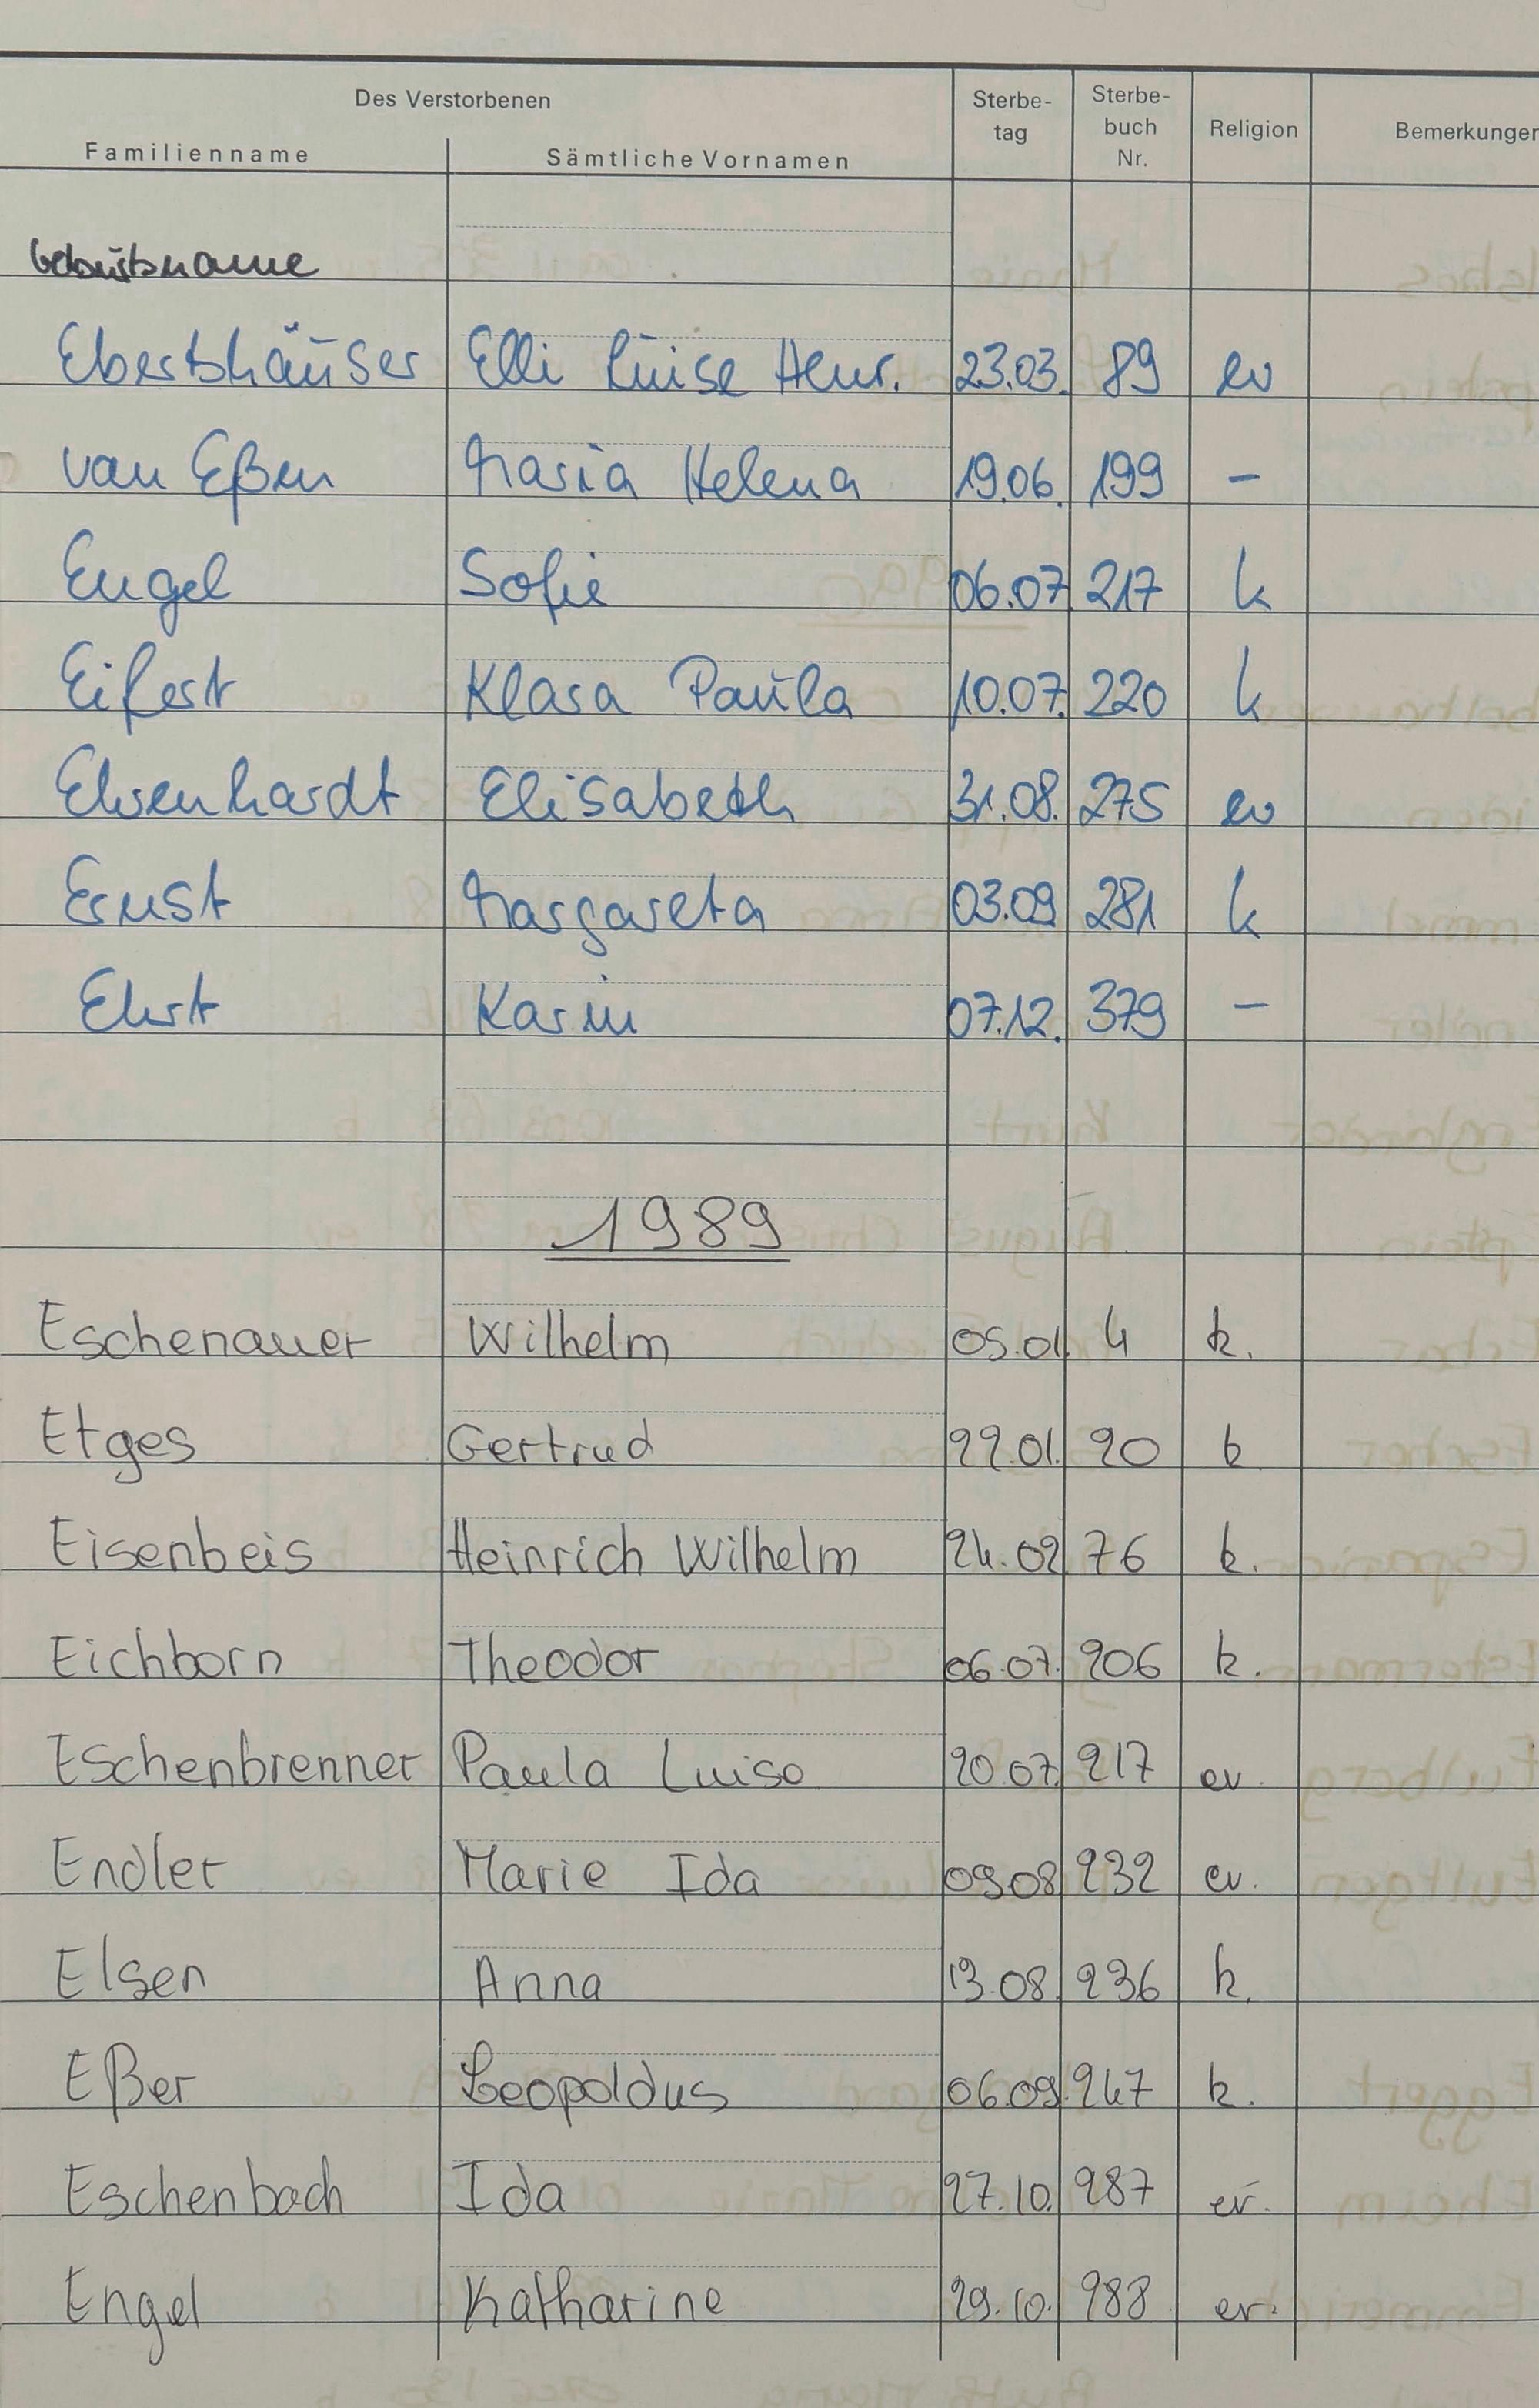 Des Verstorbenen Sterbe- Sterbe-
tag buch Religion Bemerkungen
Familienname Sämtliche Vornamen Nr.
Geburtsname
Ebertshäuser Elli Luise Henr. 23.03. 89 ev
van Eßen Maria Helena 19.06. 199 -
Engel Sofie 06.07 217 k
Eifert Klara Paula 10.07. 220 k
Ehrenhardt Elisabeth 31.08. 275 ev
Ernst Margareta 03.09 281 k
Ehrt Karin 07.12. 379 -
1989
Eschenauer Wilhelm 05.01 4 k.
Etges Gertrud 22.01. 20 k
Eisenbeis Heinrich Wilhelm 24.02 76 k.
Eichborn Theodor 06.07. 206 k.
Eschenbrenner Paula Luise 20.07. 217 ev.
Endler Marie Ida 09.08 232 ev.
Elsen Anna 13.08 236 k.
Eßer Leopoldus 06.09. 247 k.
Eschenbach Ida 27.10. 287 ev.
Engel Katharine 29.10. 288 ev.